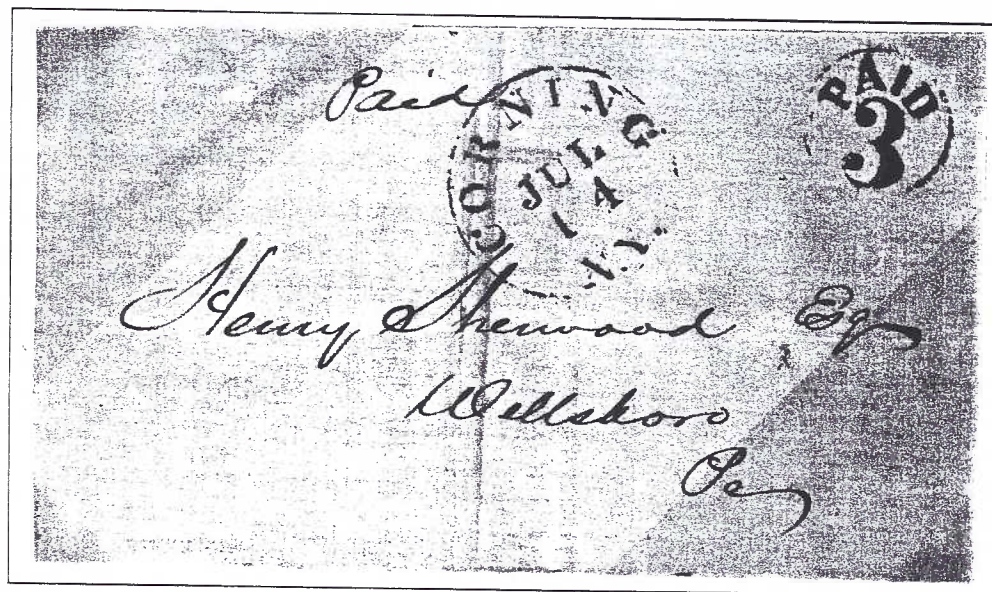 Paid
CORNING
JUL
14
N.Y.
PAID
3
Henry Sherwood Esq
Wellsboro
Pa